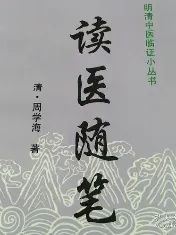 明清中医临证小丛书
读医随笔
清·周学海 著